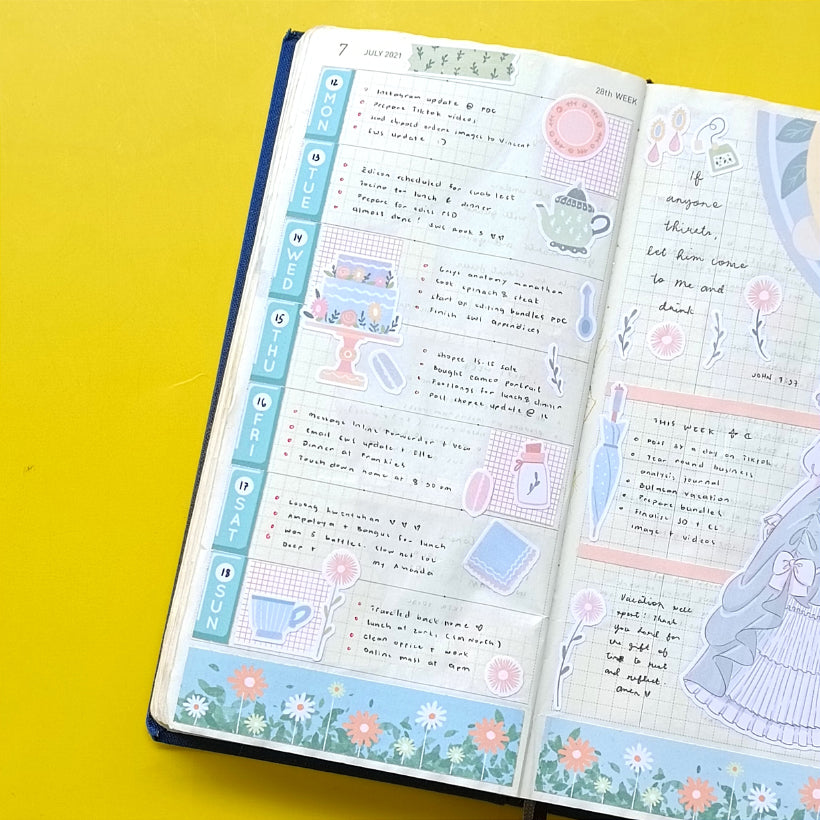 7 JULY 2021
28th WEEK
12 MON
Instagram update @ PDC
Prepare TikTok videos
Send chipped orders images to Vincent
SWS update :)
13 TUE
Edison scheduled for swab test
Tocino for lunch & dinner
Prepare for edits PSD
Almost done! SWS Book 3 ♡♡
14 WED
Greys anatomy marathon
Cook spinach & steak
Start of editing bundles PDC
Finish SWS appendices
15 THU
Shopee 15-16 sale
Bought cameo portrait
Footlongs for lunch & dinner
Post shopee update @ 12
16 FRI
Message Inline Forwarder +
Email SWS update + Elle
Dinner at Frankies
Touch down home at 8:30 pm
17 SAT
kwentuhan ♡ ♡ ♡
Ampalaya + Bangus for lunch
Won 5 battles. Slow not lol
Deep +
My Amanda
18 SUN
Travelled back home ♡
Lunch at (SM North)
Clean office + work
Online mass at 9pm
If
anyone
thirsts,
let him come
to me and
drink
JOHN 7:37
THIS WEEK
Post 2x a day on TikTok
Year round business
analysis journal
Bulacan vacation
Prepare bundles
Finalize SD + CL
image + videos
Vacation well
spent! Thank
you Lord for
the gift of
time to rest
and reflect.
Amen ♡